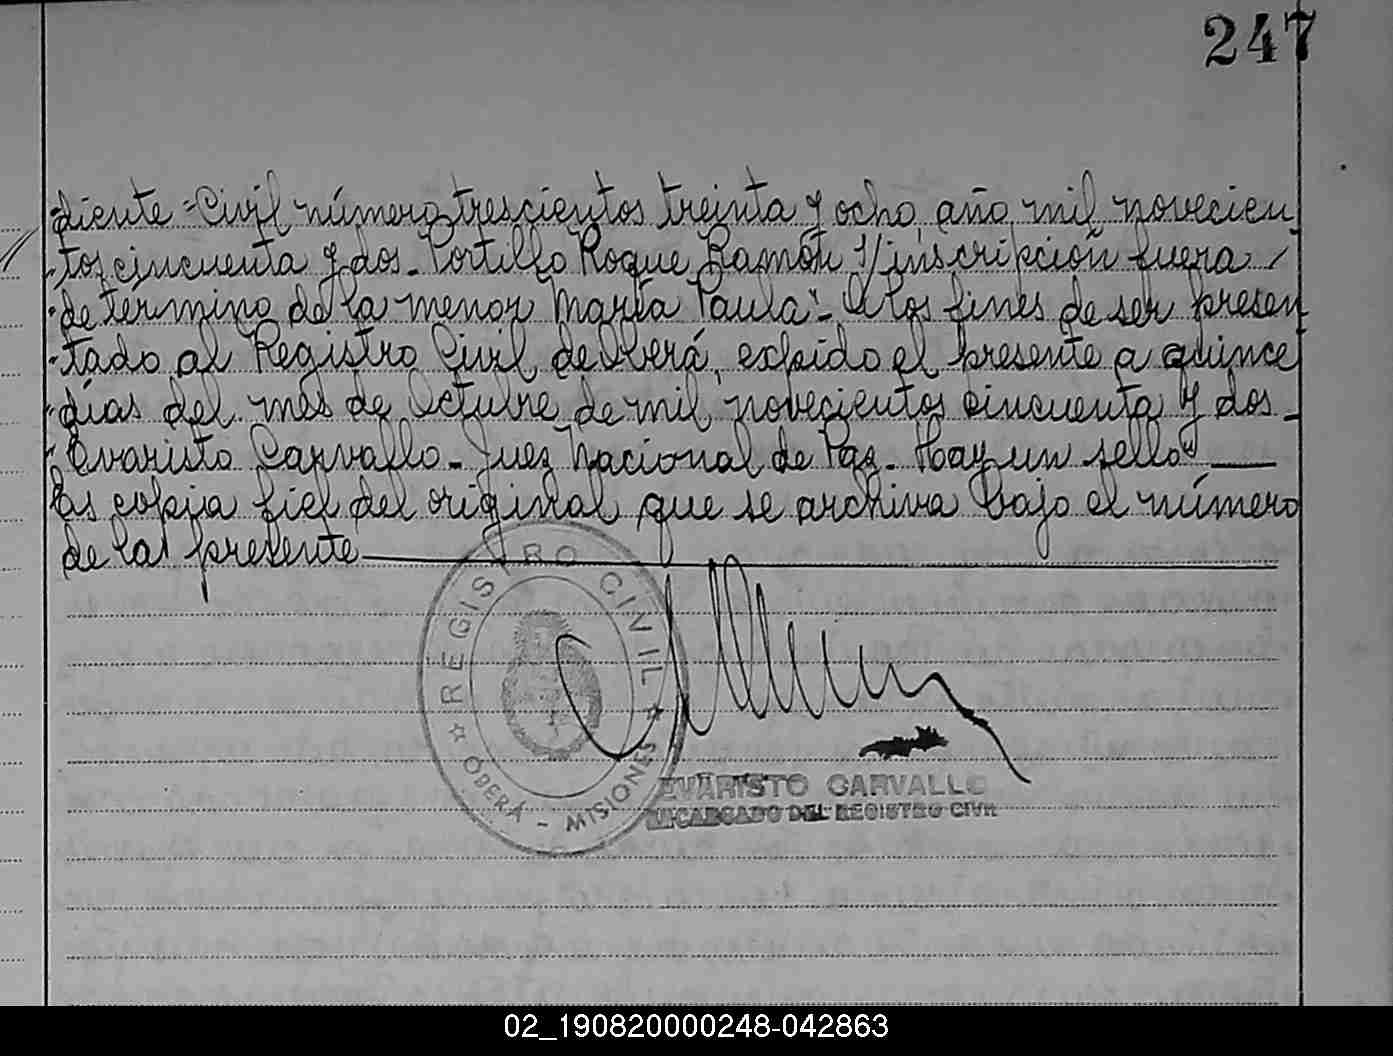 247
"diente - Civil número trescientos treinta y ocho, año mil novecien
"tos cincuenta y dos. Portillo Roque Ramón s/inscripción fuera /
"de término de la menor María Paula". A los fines de ser presen
"tado al Registro Civil, deberá, expido el presente a quince
"días del mes de Octubre de mil novecientos cincuenta y dos -
"Evaristo Carvallo - Juez Nacional de Paz - Hay un sello"
Es copia fiel del original que se archiva bajo el número
de la presente
REGISTRO CIVIL
OBERÁ - MISIONES
EVARISTO CARVALLO
ENCARGADO DEL REGISTRO CIVIL
02_190820000248-042863